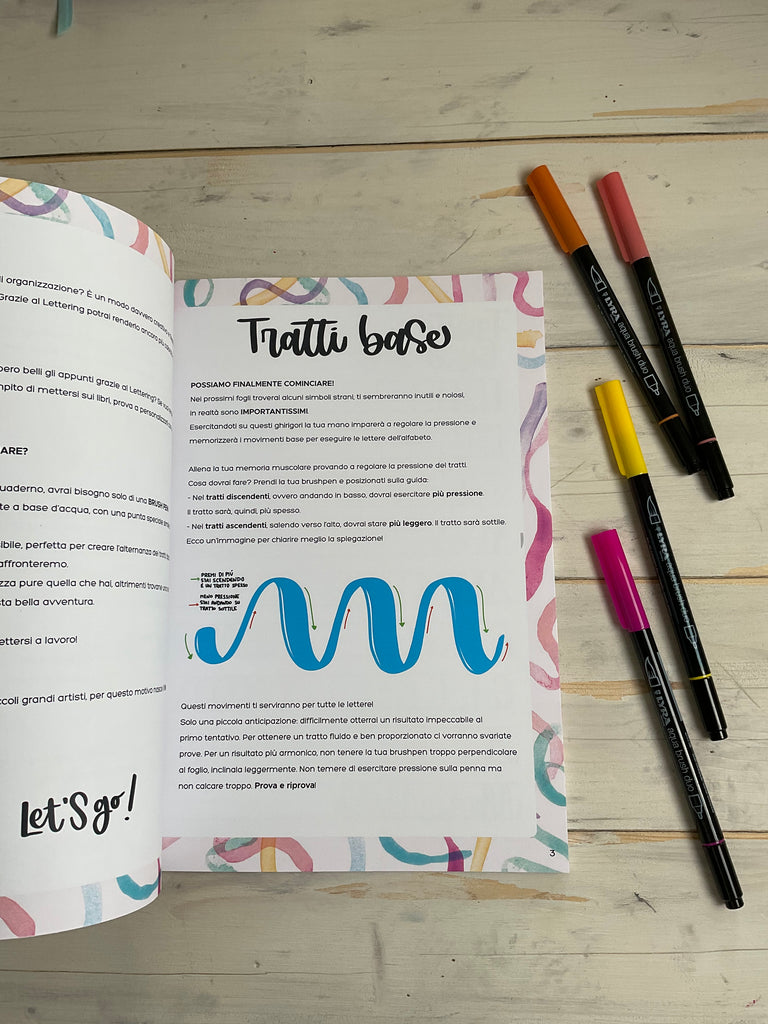 organizzazione? È un modo davvero
Grazie al Lettering potrai renderlo ancora più
belli gli appunti grazie al Lettering? Se
di mettersi sui libri, prova a
ARE?
avrai bisogno solo di una BRUSH PEN
te a base d'acqua, con una punta speciale
perfetta per creare l'alternanza dei tratti
affronteremo.
pure quella che hai, altrimenti
sta bella avventura.
mettersi a lavoro!
piccoli grandi artisti, per questo motivo
Let's go!
Tratti base
POSSIAMO FINALMENTE COMINCIARE!
Nei prossimi fogli troverai alcuni simboli strani, ti sembreranno inutili e noiosi,
in realtà sono IMPORTANTISSIMI.
Esercitandoti su questi ghirigori la tua mano imparerà a regolare la pressione e
memorizzerà i movimenti base per eseguire le lettere dell'alfabeto.
Allena la tua memoria muscolare provando a regolare la pressione dei tratti.
Cosa dovrai fare? Prendi la tua brushpen e posizionati sulla guida:
- Nei tratti discendenti, ovvero andando in basso, dovrai esercitare più pressione.
Il tratto sarà, quindi, più spesso.
- Nei tratti ascendenti, salendo verso l'alto, dovrai stare più leggero. Il tratto sarà sottile.
Ecco un'immagine per chiarire meglio la spiegazione!
PREMI DI PIÙ
STAI SCENDENDO
È UN TRATTO SPESSO
MENO PRESSIONE
STAI ANDANDO SU
TRATTO SOTTILE
Questi movimenti ti serviranno per tutte le lettere!
Solo una piccola anticipazione: difficilmente otterrai un risultato impeccabile al
primo tentativo. Per ottenere un tratto fluido e ben proporzionato ci vorranno svariate
prove. Per un risultato più armonico, non tenere la tua brushpen troppo perpendicolare
al foglio, inclinala leggermente. Non temere di esercitare pressione sulla penna ma
non calcare troppo. Prova e riprova!
3
LYRA aqua brush duo
LYRA aqua brush duo
LYRA aqua brush duo
LYRA aqua brush duo